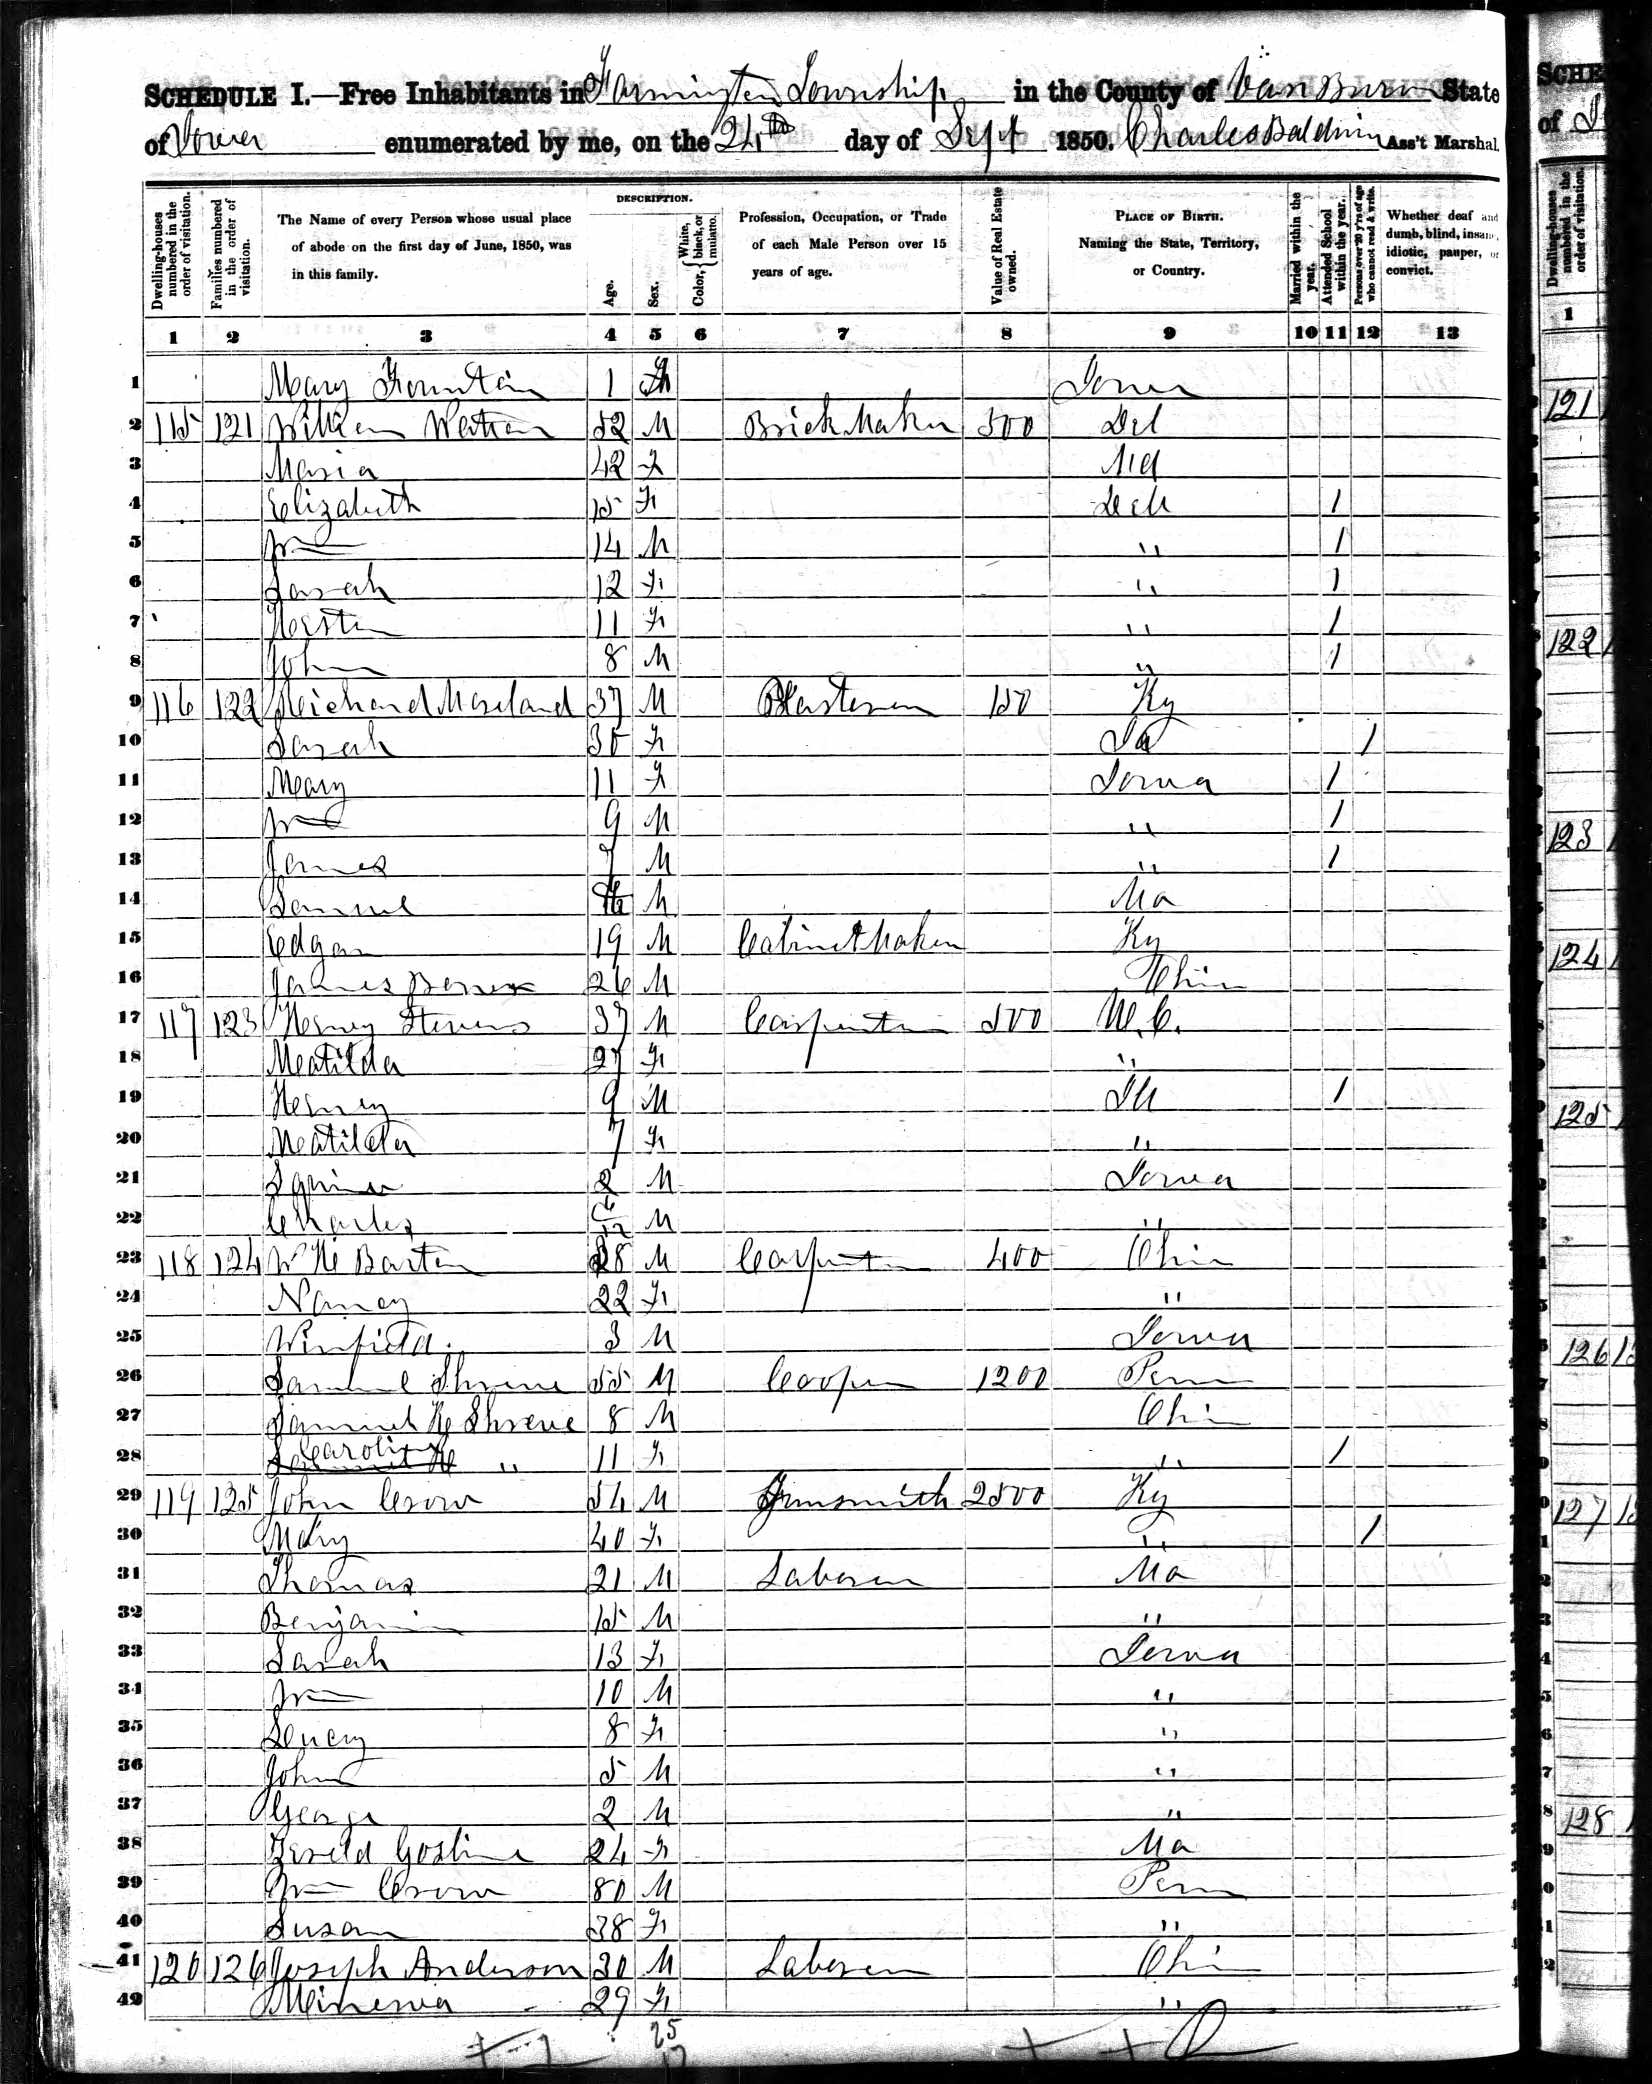 SCHEDULE I.—Free Inhabitants in Farmington Township in the County of Van Buren State
of Iowa enumerated by me, on the 24th day of Sept 1850. Charles Baldwin Ass't Marshal.
Dwelling-houses numbered in the order of visitation.
Families numbered in the order of visitation.
The Name of every Person whose usual place of abode on the first day of June, 1850, was in this family.
DESCRIPTION.
Age.
Sex.
Color, { White, black, or mulatto.
Profession, Occupation, or Trade of each Male Person over 15 years of age.
Value of Real Estate owned.
PLACE OF BIRTH. Naming the State, Territory, or Country.
Married within the year.
Attended School within the year.
Persons over 20 y'rs of age who cannot read & write.
Whether deaf and dumb, blind, insane, idiotic, pauper, or convict.
1 2 3 4 5 6 7 8 9 10 11 12 13
1 Mary Fountain 1 Iowa
2 115 121 William 52 M Brick Maker 500 Del
3 Maria 42 F Md
4 Elizabeth 15 F 1
5 Wm 14 M " 1
6 Sarah 12 F " 1
7 11 F " 1
8 John 8 M " 1
9 116 122 Richard Moreland 37 M Plasterer 150 Ky
10 Sarah 30 F 1
11 Mary 11 F Iowa 1
12 Wm 9 M " 1
13 James 7 M " 1
14 Samuel M Mo
15 Edgar 19 M Cabinet Maker Ky
16 James 26 M Ohio
17 117 123 Henry Stevens 37 M Carpenter 500 N.C.
18 Matilda 27 F "
19 Henry 9 M Ill 1
20 Matilda 7 F "
21 2 M Iowa
22 Charles M "
23 118 124 W H Barton 28 M Carpenter 400 Ohio
24 Nancy 22 F "
25 Winfield 3 M Iowa
26 Samuel Shreve 55 M Cooper 1200 Penn
27 Samuel H Shreve 8 M Ohio
28 Caroline " 11 F " 1
29 119 125 John Crow 54 M Gunsmith 2500 Ky
30 Mary 40 F " 1
31 Thomas 21 M Laborer Mo
32 Benjamin 15 M "
33 Sarah 13 F Iowa
34 Wm 10 M "
35 Lucey 8 F "
36 John 5 M "
37 George 2 M "
38 24 F Mo
39 Wm Crow 80 M Penn
40 Susan 38 F "
41 120 126 Joseph Anderson 30 M Laborer Ohio
42 Minerva 29 F "
25
17
SCHE
of
1
121
122
123
124
125
126
127
128